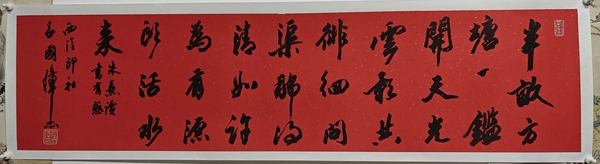 半畝方
塘一鑑
開天光
雲影共
徘徊問
渠那得
清如許
為有源
頭活水
來
朱熹讀
書有感
西泠印社
呂國璋